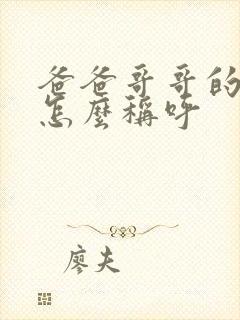 爸爸哥哥的
怎麼稱呼
廖夫